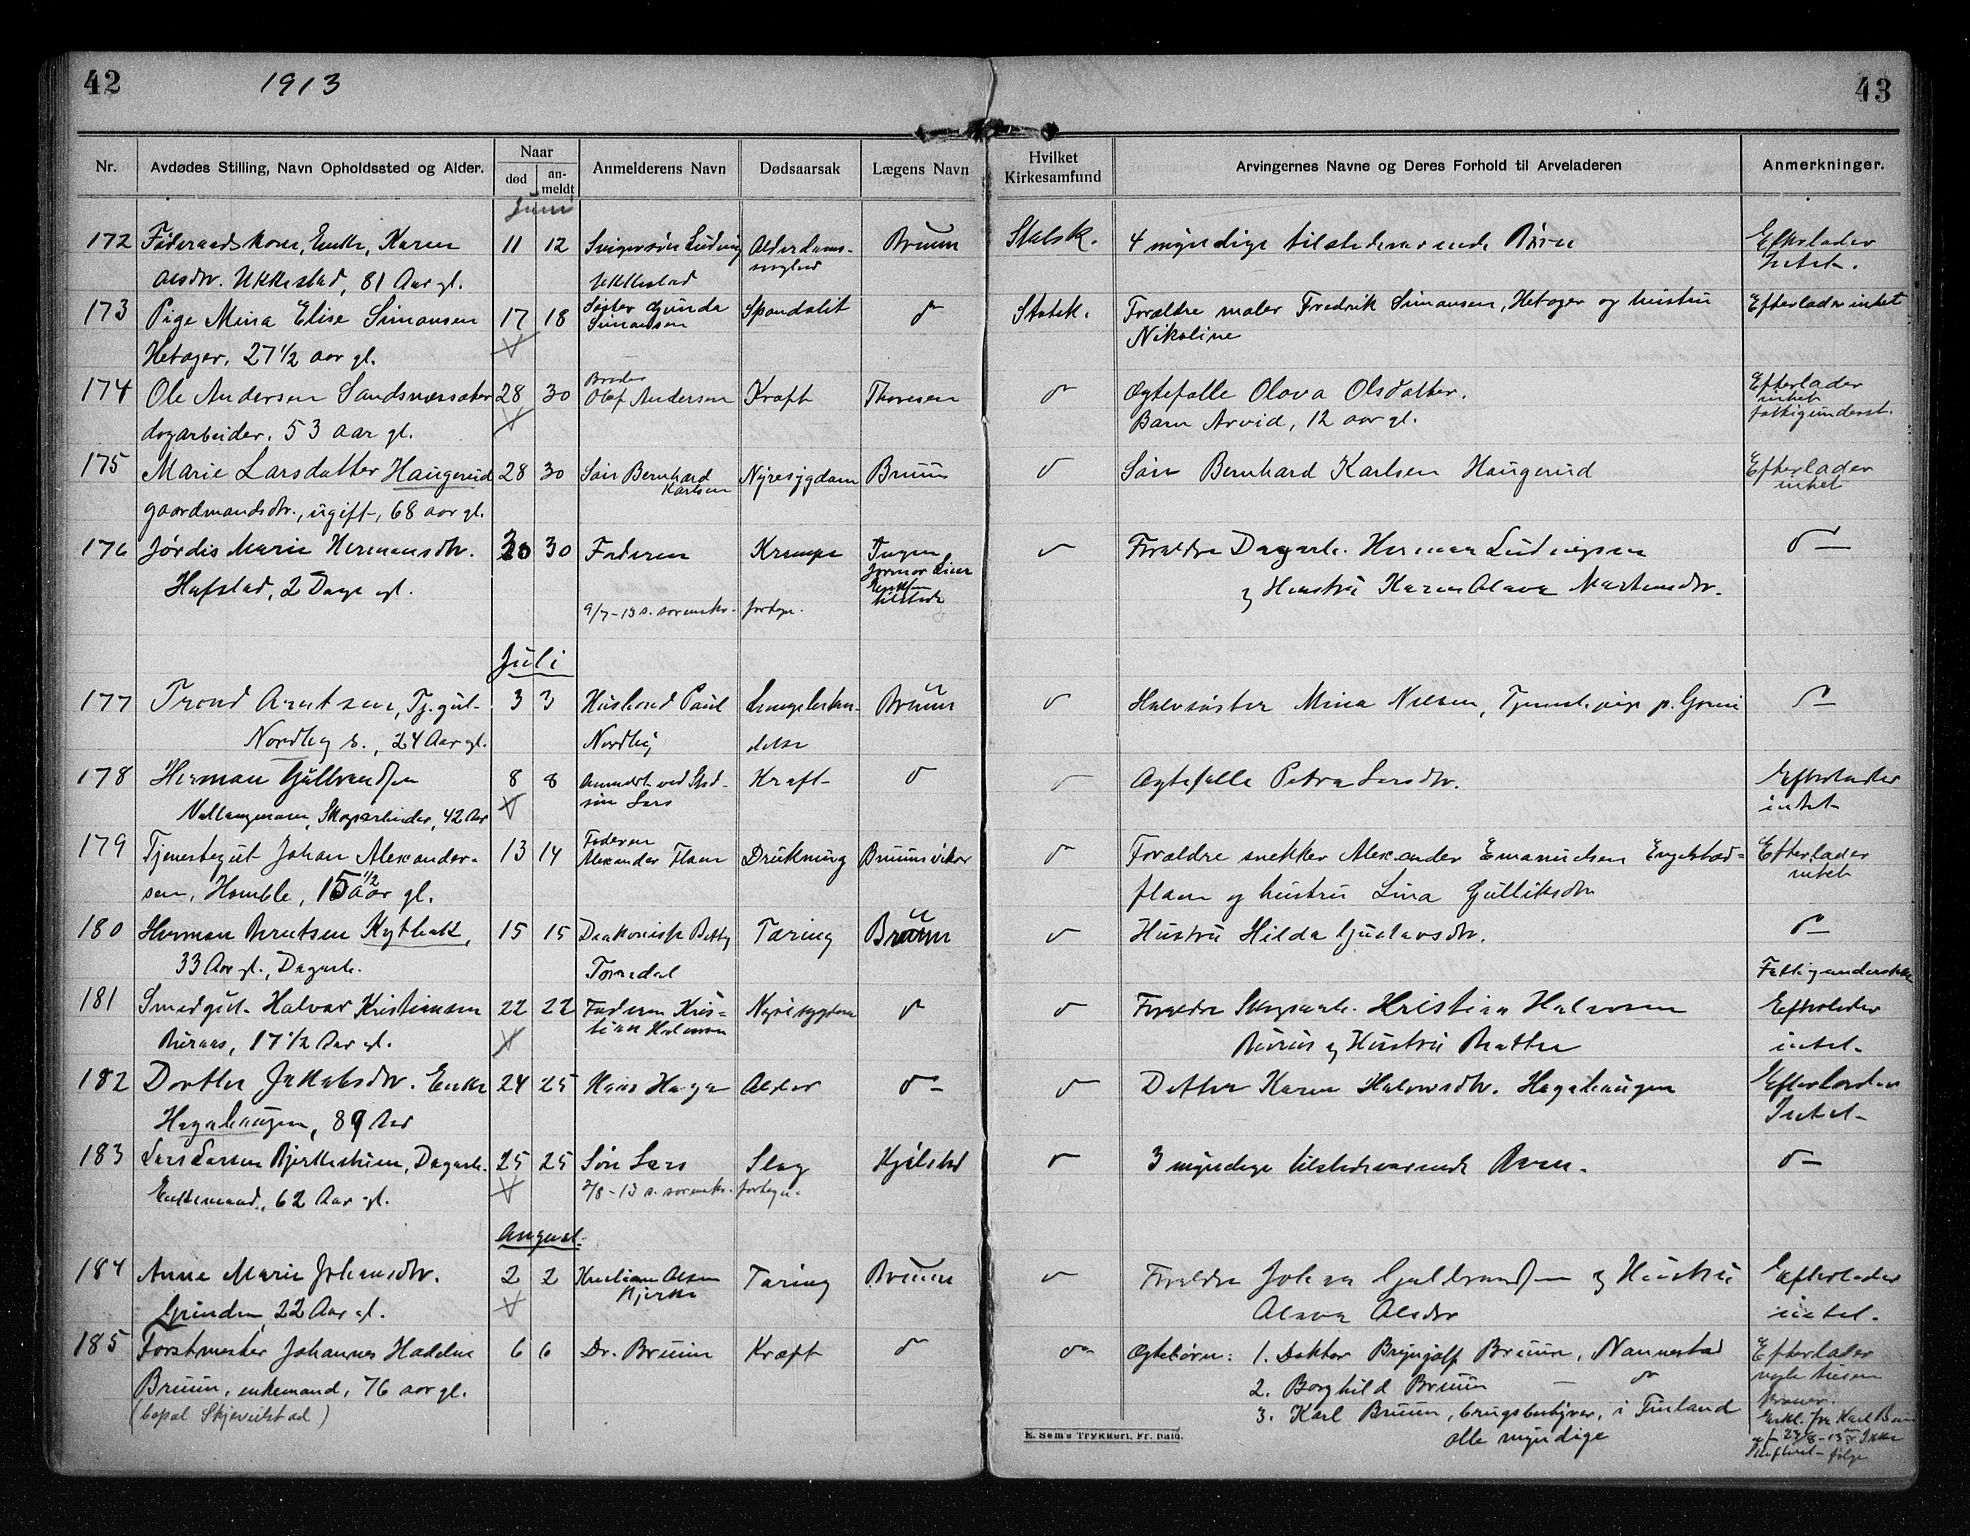 42
1913
43
Nr.
Avdødes Stilling, Navn Opholdssted og Alder.
Naar
død
an-
meldt
Anmelderens Navn
Dødsaarsak
Lægens Navn
Hvilket
Kirkesamfund
Arvingernes Navne og Deres Forhold til Arveladeren
Anmerkninger.
Juni
172 Føderaadskone, Enke, Karen 11 12 Svigersøn Ludvig Alderdoms- Bruun Statsk. 4 myndige tilstedeværende Børn Efterlader
Olsdtr. Ukkestad, 81 Aar gl. Ukkestad Intet.
173 Pige Mina Elise Simonsen 17 18 Søster Gunda Spondalit Statsk. Forældre maler Fredrik Simonsen, Hetager og hustru Efterlader intet
Simonsen Nikoline
Hetager, 27 1/2 aar gl.
174 Ole Andersen Sandsnæsseter 28 30 Broder Kræft Thoresen Egtefælle Olava Olsdatter. Efterlader
Olaf Andersen intet
dagarbeider, 53 aar gl. Barn Arvid, 12 aar gl. fattigunderst.
175 Marie Larsdatter Haugerud 28 30 Søn Bernhard Nyresygdom Bruun Søn Bernhard Karlsen Haugerud Efterlader
Karlsen intet
gaardmandsdtr., ugift, 68 aar gl.
176 Jørdis Marie Hermansdtr. 30 30 Faderen Krampe Ingen Forældre Dagarb. Herman Ludvigsen
Hafstad, 2 Dage gl. jormor Lier tilstede og Hustru Karen Olava Martinsdtr.
9/7-13 s. sorenskr. fortegn.
Juli
177 Trond Arntsen, Tj.gut 3 3 Husbond Paul Lungebeten- Bruun Halvsøster Mina Nilsen, Tjenestepige p.
Nordby s., 24 Aar gl. Nordby delse
178 Herman Gulbrandsen 8 8 Anmeldt ved Sted- Kræft Egtefælle Petra Larsdtr. Efterlader
søn Lars intet
Skogarbeider, 42 Aar
179 Tjenestegut Johan Alexander- 13 14 Faderen Drukning Bruuns vikar Forældre snekker Alexander Emanuelsen Engelstad= Efterlader
Alexander Flaen intet
sen, Homble, 15 1/2 aar gl. flaen og hustru Lina Gulliksdtr
180 Herman Berntsen 15 15 Diakonisse Betty Tæring Bruun Hustru Hilda Gustavsdtr.
33 Aar gl., Dagarb. Torsdal
Fattigunderst.
181 Smedgut Halvar Kristiansen 22 22 Faderen Kris= Nyresygdom Forældre Skogsarb. Kristian Halvorsen Efterlader
tian Halvorsen
Buraas, 17 1/2 Aar gl. Buraas og Hustru intet
182 Dorthe Jakobsdtr. Enke 24 25 Hans Haga Alder Datter Karen Halvorsdtr. Hagahaugen Efterlader
Hagahaugen, 89 Aar Intet
183 Lars Larsen Bjerkeshuen, Dagarb. 25 25 Søn Lars Slag Kjølstad 3 myndige tilstedeværende Børn.
Enkemand, 62 Aar gl. 2/8-13 s. sorenskr. fortegn.
August
184 Anne Marie Johansdtr. 2 2 Kristian Olsen Tæring Bruun Forældre Johan Gulbrandsen og Hustru Efterlader
Bjerke
Grinden, 22 Aar gl. Olava Olsdtr intet.
185 Forstmester Johannes Hadeln 6 6 Dr. Bruun Kræft Egtebørn: 1. Doktor Brynjolf Bruun, Nannestad Efterlader
Bruun, enkemand, 76 aar gl. 2. Borghild Bruun
(bopæl Skjeveilstad) 3. Karl Bruun, brugsbestyrer, i Finland
alle myndige
Erkl. fra Karl Bruun
E. Sem's Trykkeri, Fr.hald.